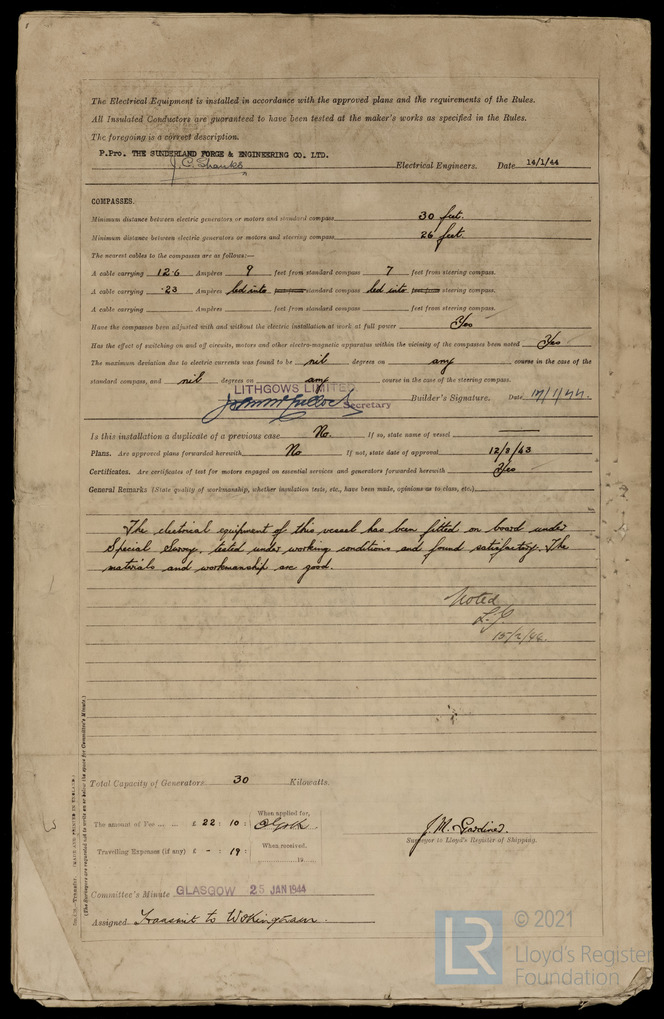 The Electrical Equipment is installed in accordance with the approved plans and the requirements of the Rules.
All Insulated Conductors are guaranteed to have been tested at the maker's works as specified in the Rules.
The foregoing is a correct description.
P.Pro. THE SUNDERLAND FORGE & ENGINEERING CO. LTD.
J. C. Shanks Electrical Engineers. Date 14/1/44
COMPASSES.
Minimum distance between electric generators or motors and standard compass 30 feet.
Minimum distance between electric generators or motors and steering compass 26 feet.
The nearest cables to the compasses are as follows:—
A cable carrying 12.6 Ampères 9 feet from standard compass 7 feet from steering compass.
A cable carrying .23 Ampères led into standard compass led into steering compass.
A cable carrying Ampères feet from standard compass feet from steering compass.
Have the compasses been adjusted with and without the electric installation at work at full power Yes
Has the effect of switching on and off circuits, motors and other electro-magnetic apparatus within the vicinity of the compasses been noted Yes
The maximum deviation due to electric currents was found to be nil degrees on any course in the case of the
standard compass, and nil degrees on any course in the case of the steering compass.
LITHGOWS LIMITED.
Secretary Builder's Signature. Date 17/1/44.
Is this installation a duplicate of a previous case No. If so, state name of vessel
Plans. Are approved plans forwarded herewith No If not, state date of approval 12/2/43
Certificates. Are certificates of test for motors engaged on essential services and generators forwarded herewith Yes
General Remarks (State quality of workmanship, whether insulation tests, etc., have been made, opinions as to class, etc.)
The electrical equipment of this vessel has been fitted on board under
Special Survey, tested under working conditions and found satisfactory. The
materials and workmanship are good.
Noted
15/2/44.
Total Capacity of Generators 30 Kilowatts.
The amount of Fee ... £ 22 : 10 : When applied for,
J. M. Gardiner.
Surveyor to Lloyd's Register of Shipping.
Travelling Expenses (if any) £ - : 19 : When received,
19
Committee's Minute GLASGOW 25 JAN 1944
Assigned Transmit to Wokingham
(The Surveyors are requested not to write on or below the space for Committee's Minute.)
LR © 2021
Lloyd's Register
Foundation